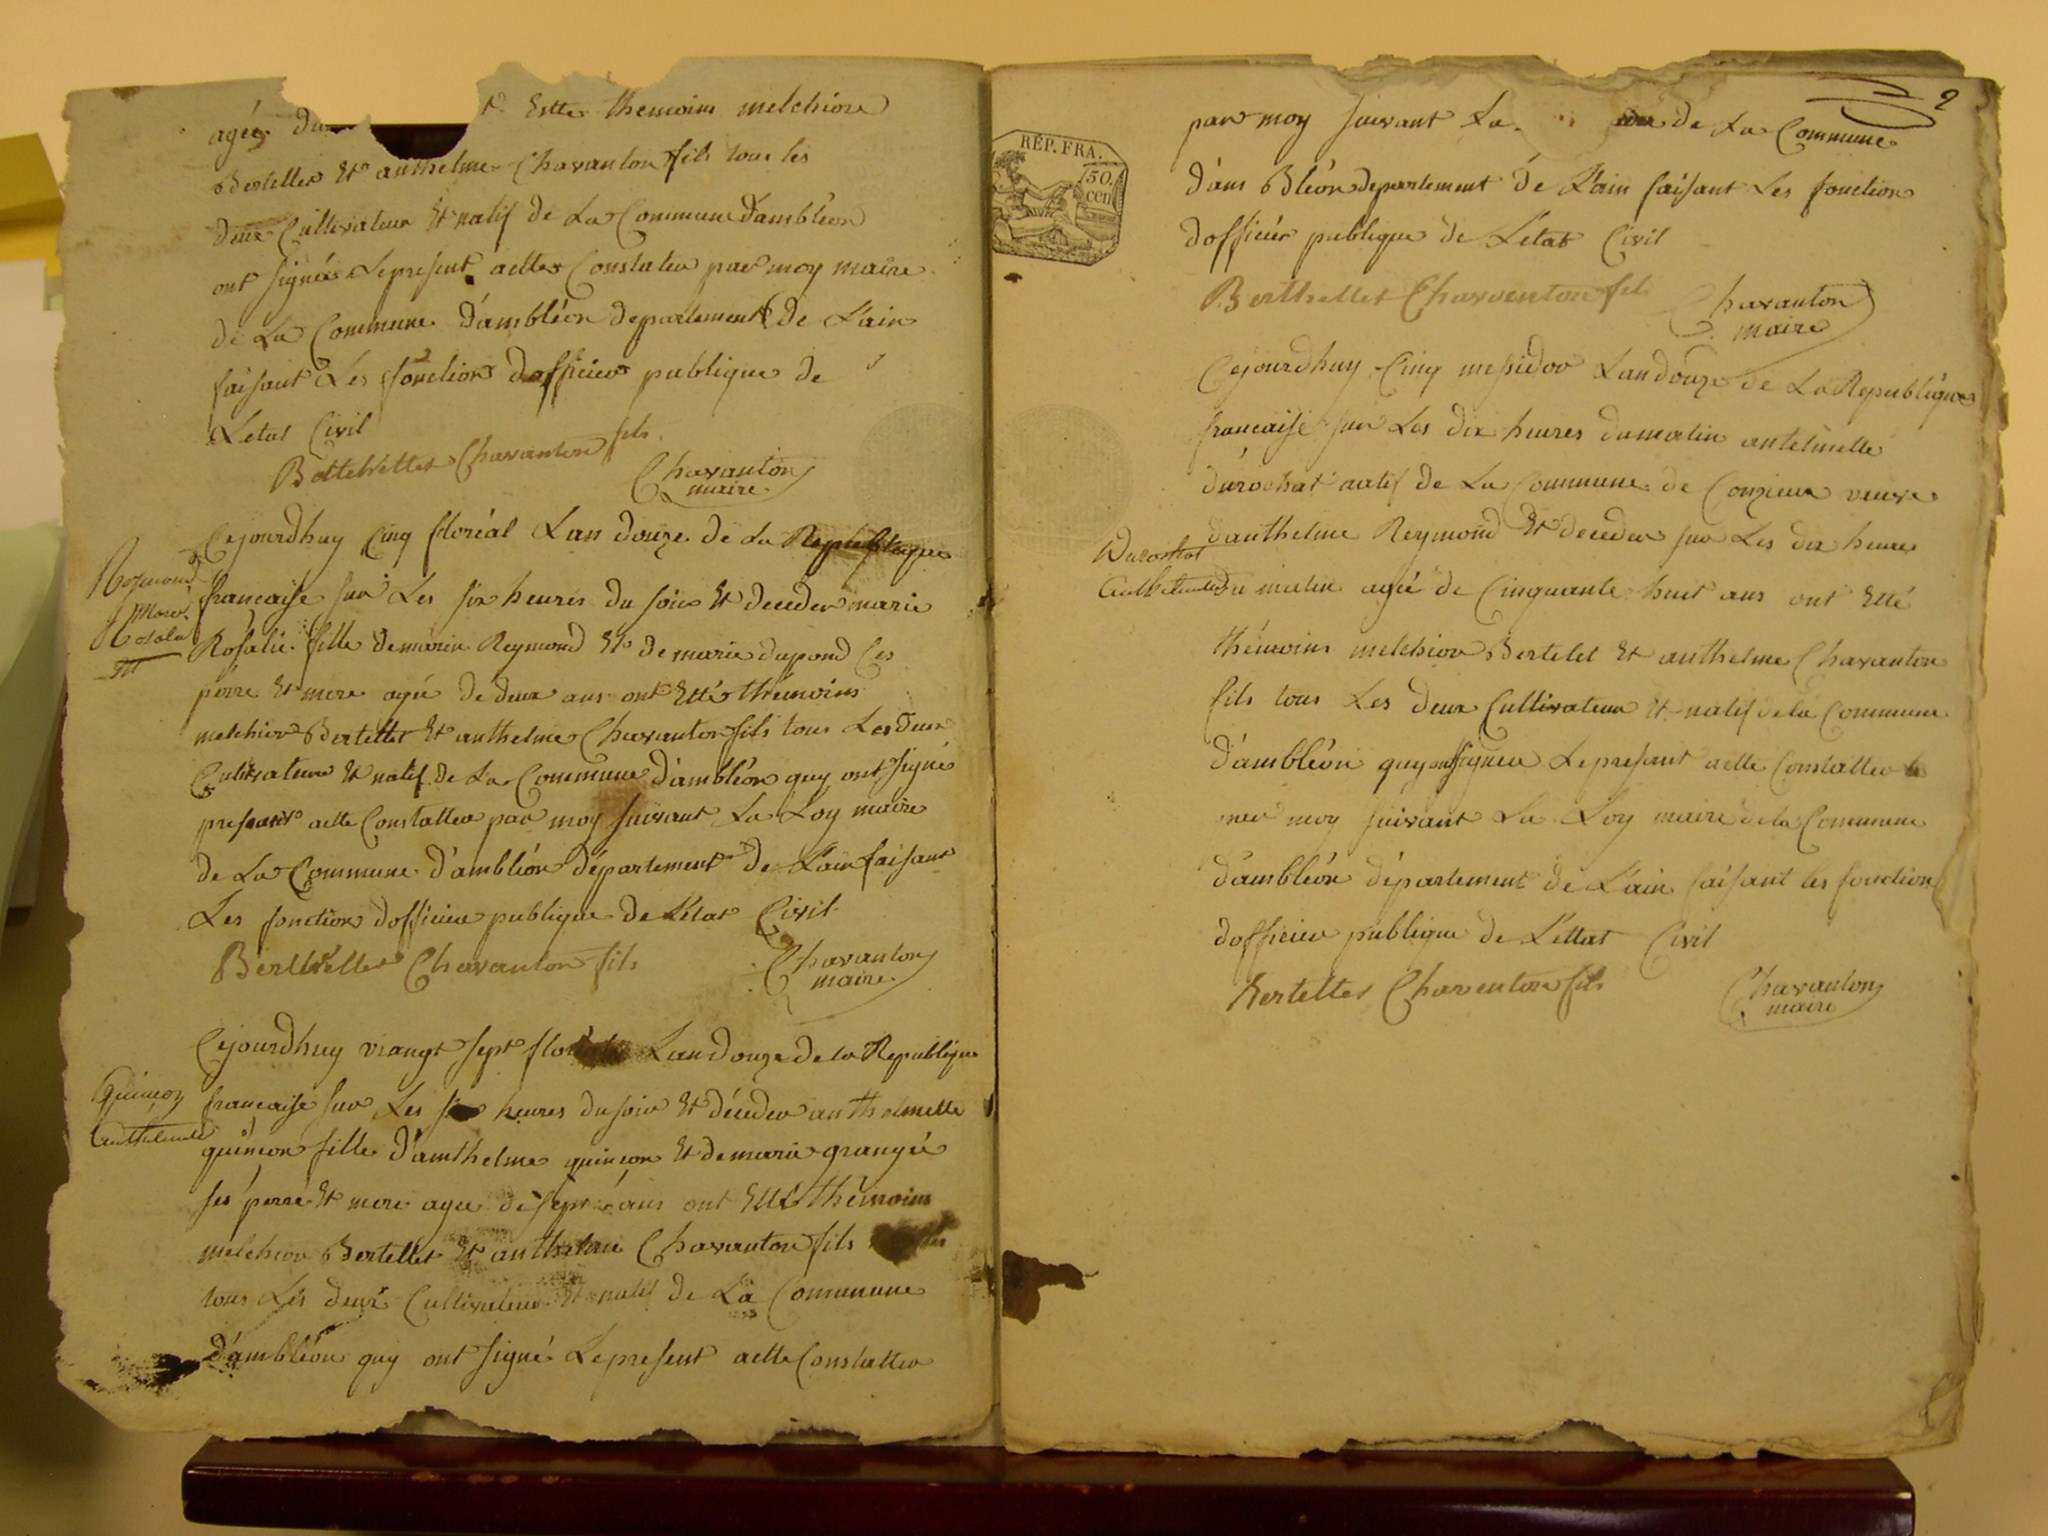 agée du Etté themoins melchior
Bertellet Et anthelme Chavanton fils tous les
deux Cultivateur Et natif de La Commune d'ambléon
ont signée Le present actte Constater par moy maire
de La Commune d'ambléon departement de L'ain
faisant Les fonction d'officier publique de
L'etat Civil
Chavanton fils
Chavanton
maire
Cejourdhuy Cinq floréal L'an douze de La Republique
francaise sur Les six heures du soir Et deceder marie
Rosalie fille de marin Reymond Et de marie dupond ses
perre Et mere agée de deux ans ont Etté thémoins
melchior Bertellet Et anthelme Chavanton fils tous Les deux
Cultivateur Et natif de La Commune d'ambléon quy ont signé
presant actte Constatter par moy suivant La Loy maire
de La Commune d'ambléon département de L'ain faisant
Les fonction d'officier publique de L'état Civil
Berthellet Chavanton fils
Chavanton
maire
Reymond
Marie
Rosalie
Cejourdhuy viangt sept Landouze de la Republique
francaise sur Les heures du soir Et déceder anthelmette
quinson fille d'anthelme quinson Et de marie grangée
ses perre Et mere agee de sept ans ont Etté thémoins
melchior Bertellet Et anthelme Chavanton fils
tous Les deux Cultivateur Et natif de La Commune
d'ambléon quy ont signé Le present actte Constatter
Quinson
2
par moy suivant La de La Commune
d'am Bléon departement de L'ain faisant Les fonction
d'officier publique de L'état Civil
Berthellet Charventon fils
Chavanton
maire
RÉP. FRA.
50
cen
Cejourdhuy Cinq messidor Landouze de La Republique
francaise sur Les dix heures du matin antelmette
durochat natif de La Commune de Conzieux veuve
d'anthelme Reymond Et deceder sur Les dix heures
du matin agée de Cinquante huit ans ont Etté
thémoins melchior Bertelet Et anthelme Chavanton
fils tous Les deux Cultivateur Et natif de la Commune
d'ambléon quy ont signée Le presant actte Constatter
par moy suivant La Loy maire de la Commune
d'ambléon département de L'ain faisant les fonction
d'officier publique de L'ettat Civil
Bertellet Charventon fils
Chavanton
maire
Durochat